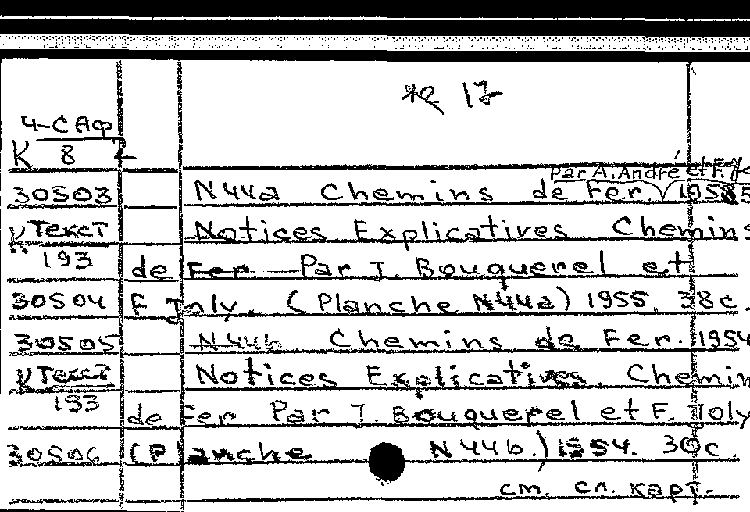 17
4-САф
К 8 2
Par A. André et F. Jo
30503 N44a Chemins de Fer. 1955
К Текст Notices Explicatives Chemins
193 de Fer Par J. Bouquerel et
30504 F. Joly. (Planche N44a) 1955. 38c.
30505 N44b Chemins de Fer. 1954
К Текст Notices Explicatives. Chemin
193 de Fer Par J. Bouquerel et F. Joly
30506 (Planche N44b.) 1954. 30c.
см. сл. карт.